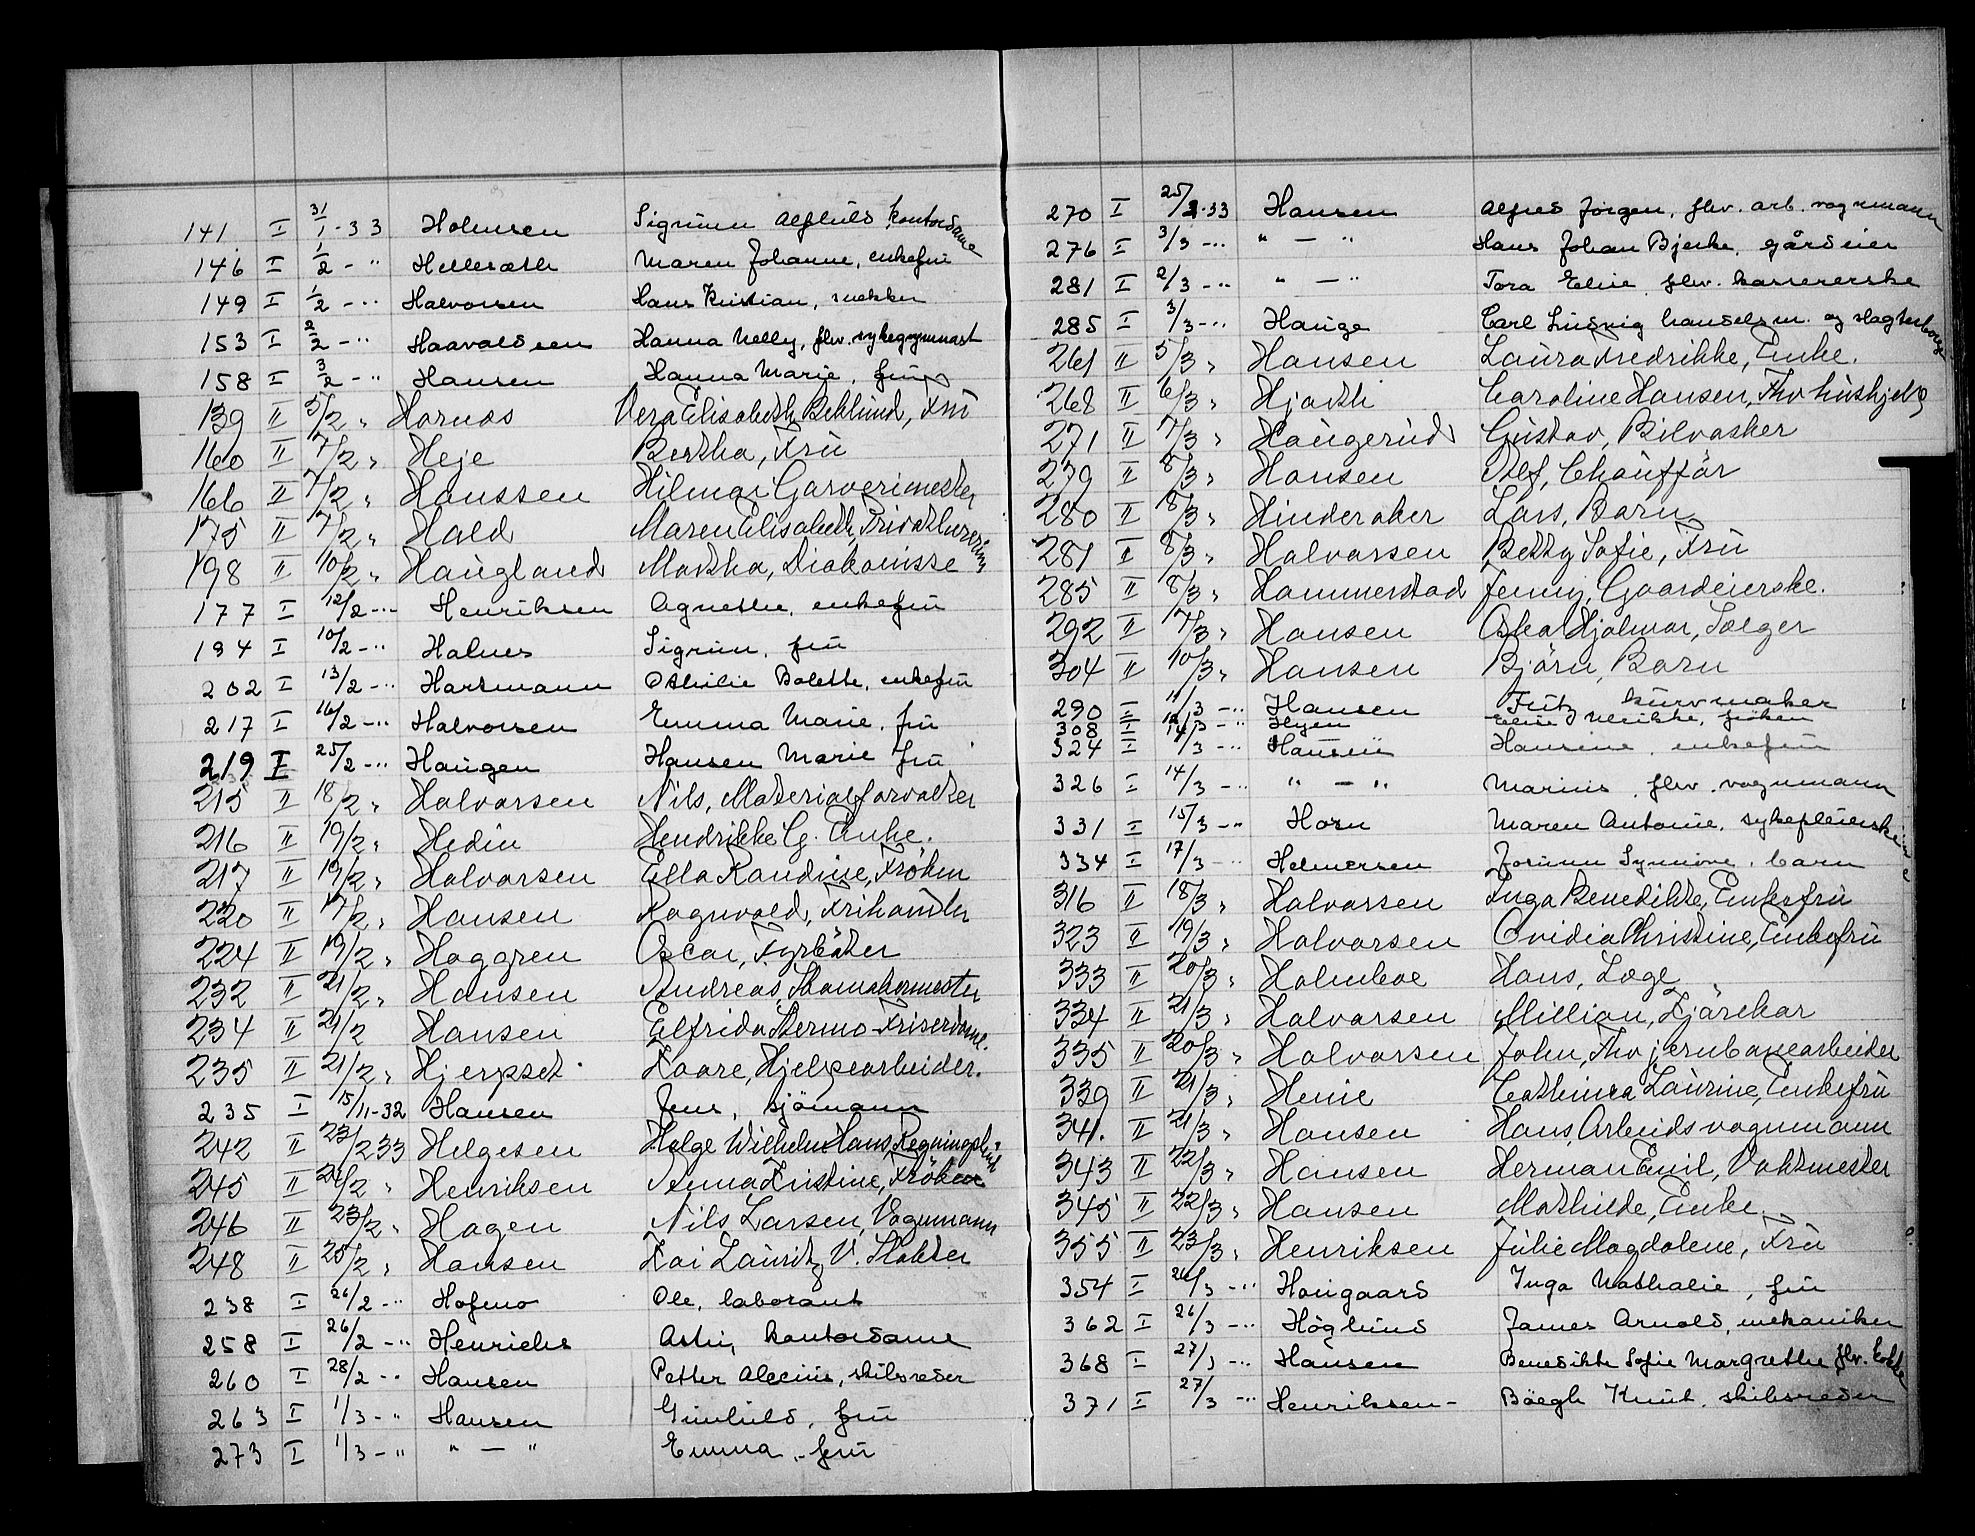 141 I 31/1-33 Holmsen Sigrunn Alfhild kontordame
146 I 1/2 - " Hellesæth Maren Johanne, enkefru
149 I 1/2 - " Halvorsen Hans Kristian, snekker
153 I 2/2 - " Haavaldsen Hanna Nelly, fhv. sykegymnast
158 I 3/2 - " Hansen Hanna Marie, fru
139 II 5/2 " Hornæs Vera Elisabeth Beklund, Fru
160 II 7/2 " Heje Bertha, Fru
166 II 7/2 " Hanssen Hilmar Garverimester
175 II 7/2 " Hald Maren Elisabeth, Privatlærerinne
198 II 10/2 " Haugland Martha, Diakonisse
177 I 12/2 - " Henriksen Agnethe, enkefru
194 I 10/2 - " Halnes Sigrun, fru
202 I 13/2 - " Hartmann Othilie Bolette, enkefru
217 I 16/2 - " Halvorsen Emma Marie, fru
219 I 25/2 - " Haugen Hansen Marie fru
215 II 18/2 " Halvorsen Nils, Materialforvalter
216 II 19/2 " Hedin Hendrikke G. Enke.
217 II 19/2 " Halvorsen Ella Randine, Frøken
220 II 17/2 " Hansen Ragnvald, Frihandler
224 II 19/2 " Haggren Oscar, Fyrbøter
232 II 21/2 " Hansen Andreas, Skomakermester
234 II 21/2 Hansen Elfrida Thermo-Friserdame.
235 II 21/2 " Hjerpset Kaare, Hjelpearbeider.
235 I 15/11-32 Hansen Jens, sjömann
242 II 23/2 33 Helgesen Helge Wilhelm Hans,
245 II 24/2 " Henriksen Anna Kristine, Frøken
246 II 23/2 " Hagen Nils Larsen, Vognmann
248 II 25/2 " Hansen Kai Lauritz V. Slakter
238 I 26/2 - " Hofmo Ole, laborant
258 I 26/2 - " Henrichs Astri, kontordame
260 I 28/2 - " Hansen Petter Alecius, skibsreder
263 I 1/3 - " Hansen Gunhild, fru
273 I 1/3 - " " — " Emma, fru
270 I 25/2-33 Hansen Alfred Jörgen, fhv. arb. vognmann
276 I 3/3 - " " — " Hans Johan Bjerke, gårdeier
281 I 2/3 - " " — " Tora Elise, fhv. kassererske
285 I 3/3 - " Hauge Carl Ludvig handelsm. og slagterborger
261 II 5/3 " Hansen Laura Fredrikke, Enke.
268 II 6/3 " Hjorth Caroline Hansen, Fhv hushjelp
271 II 7/3 " Haugerud Gustav, Bilvasker
279 II 8/3 " Hansen Alf, Chauffør
280 II 8/3 " Hinderaker Lars, Barn
281 II 8/3 " Halvorsen Betzy Sofie, Fru
285 II 8/3 " Hammerstad Jenny, Gaardeierske.
292 II 7/3 " Hansen Oskar Hjalmar, Selger
304 II 10/3 " Hansen Björn, Barn
290 I 11/3 - " Hansen Fritz kurvmaker
308 I 12/3 - " Hyen Elise Ulrikke, fröken
324 I 14/3 - " Hansen Hansine, enkefru
326 I 14/3 - " " — " Marius, fhv. vognmann
331 I 15/3 - " Horn Maren Antonie, sykepleierske
334 I 17/3 - " Helmersen Jorunn Synnöve, barn
316 II 18/3 " Halvorsen Inga Benedikte, Enkefru
323 II 19/3 " Halvorsen Ovidia Christine, Enkefru
333 II 20/3 " Holmboe Hans, Læge
334 II 21/3 " Halvorsen Millian, Kjørekar
335 II 20/3 " Halvorsen John, Fhv jernbanearbeider
339 II 21/3 " Henie Cathinca Laurine, Enkefru
341. II 21/3 " Hansen Hans, Arbeidsvognmann
343 II 22/3 " Hansen Herman Emil, Vaktmester
345 II 22/3 " Hansen Mathilde, Enke.
355 II 23/3 " Henriksen Julie Magdalene, Fru
354 I 26/3 - " Hougaard Inga Nathalie, fru
362 I 26/3 - " Höglund James Arnold, mekaniker
368 I 27/3 - " Hansen Benedikte Sofie Margrethe fhv.
371 I 27/3 - " Henriksen - Böegh Knut, skibsreder